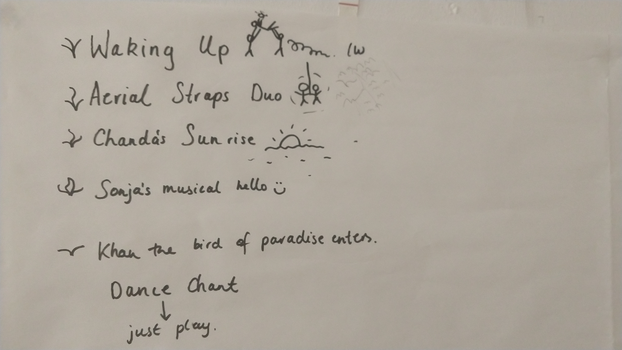 Waking Up
Aerial Straps Duo
Chanda's Sunrise
Sonja's musical hello
Khan the bird of paradise enters.
Dance Chant
just play.